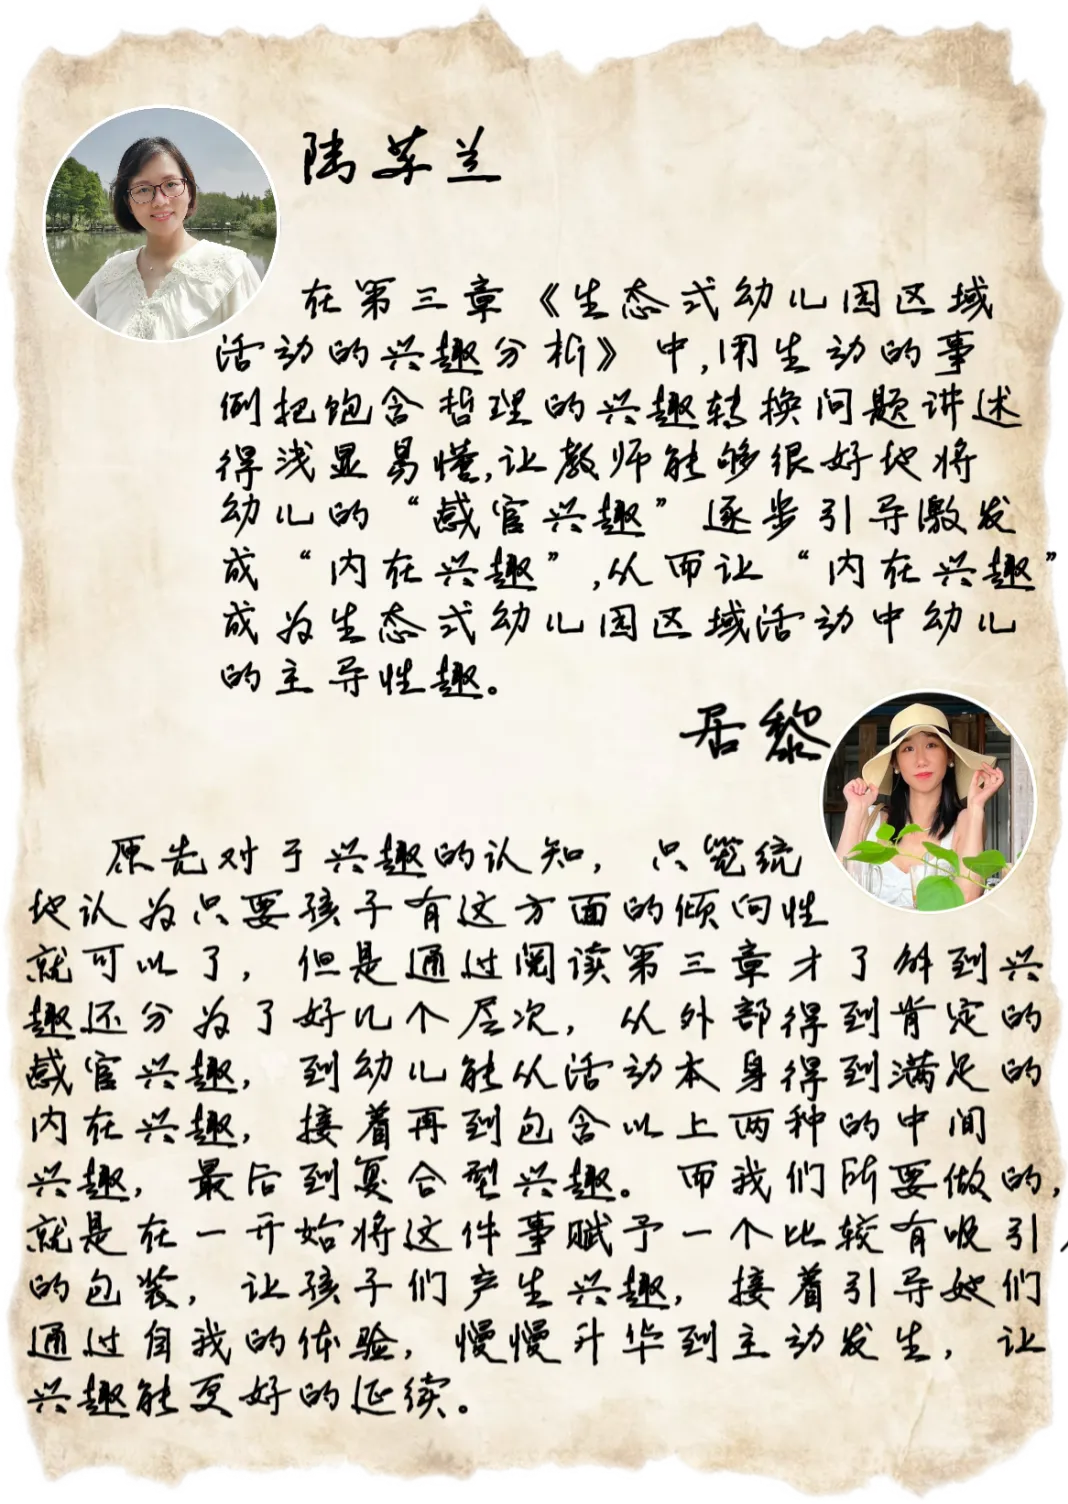 陆苏兰
在第三章《生态式幼儿园区域
活动的兴趣分析》中,用生动的事
例把饱含哲理的兴趣转换问题讲述
得浅显易懂,让教师能够很好地将
幼儿的“感官兴趣”逐步引导激发
成“内在兴趣”,从而让“内在兴趣”
成为生态式幼儿园区域活动中幼儿
的主导性趣。
居黎
原先对于兴趣的认知,只笼统
地认为只要孩子有这方面的倾向性
就可以了,但是通过阅读第三章才了解到兴
趣还分为了好几个层次,从外部得到肯定的
感官兴趣,到幼儿能从活动本身得到满足的
内在兴趣,接着再到包含以上两种的中间
兴趣,最后到复合型兴趣。而我们所要做的,
就是在一开始将这件事赋予一个比较有吸引人
的包装,让孩子们产生兴趣,接着引导她们
通过自我的体验,慢慢升华到主动发生,让
兴趣能更好的延续。